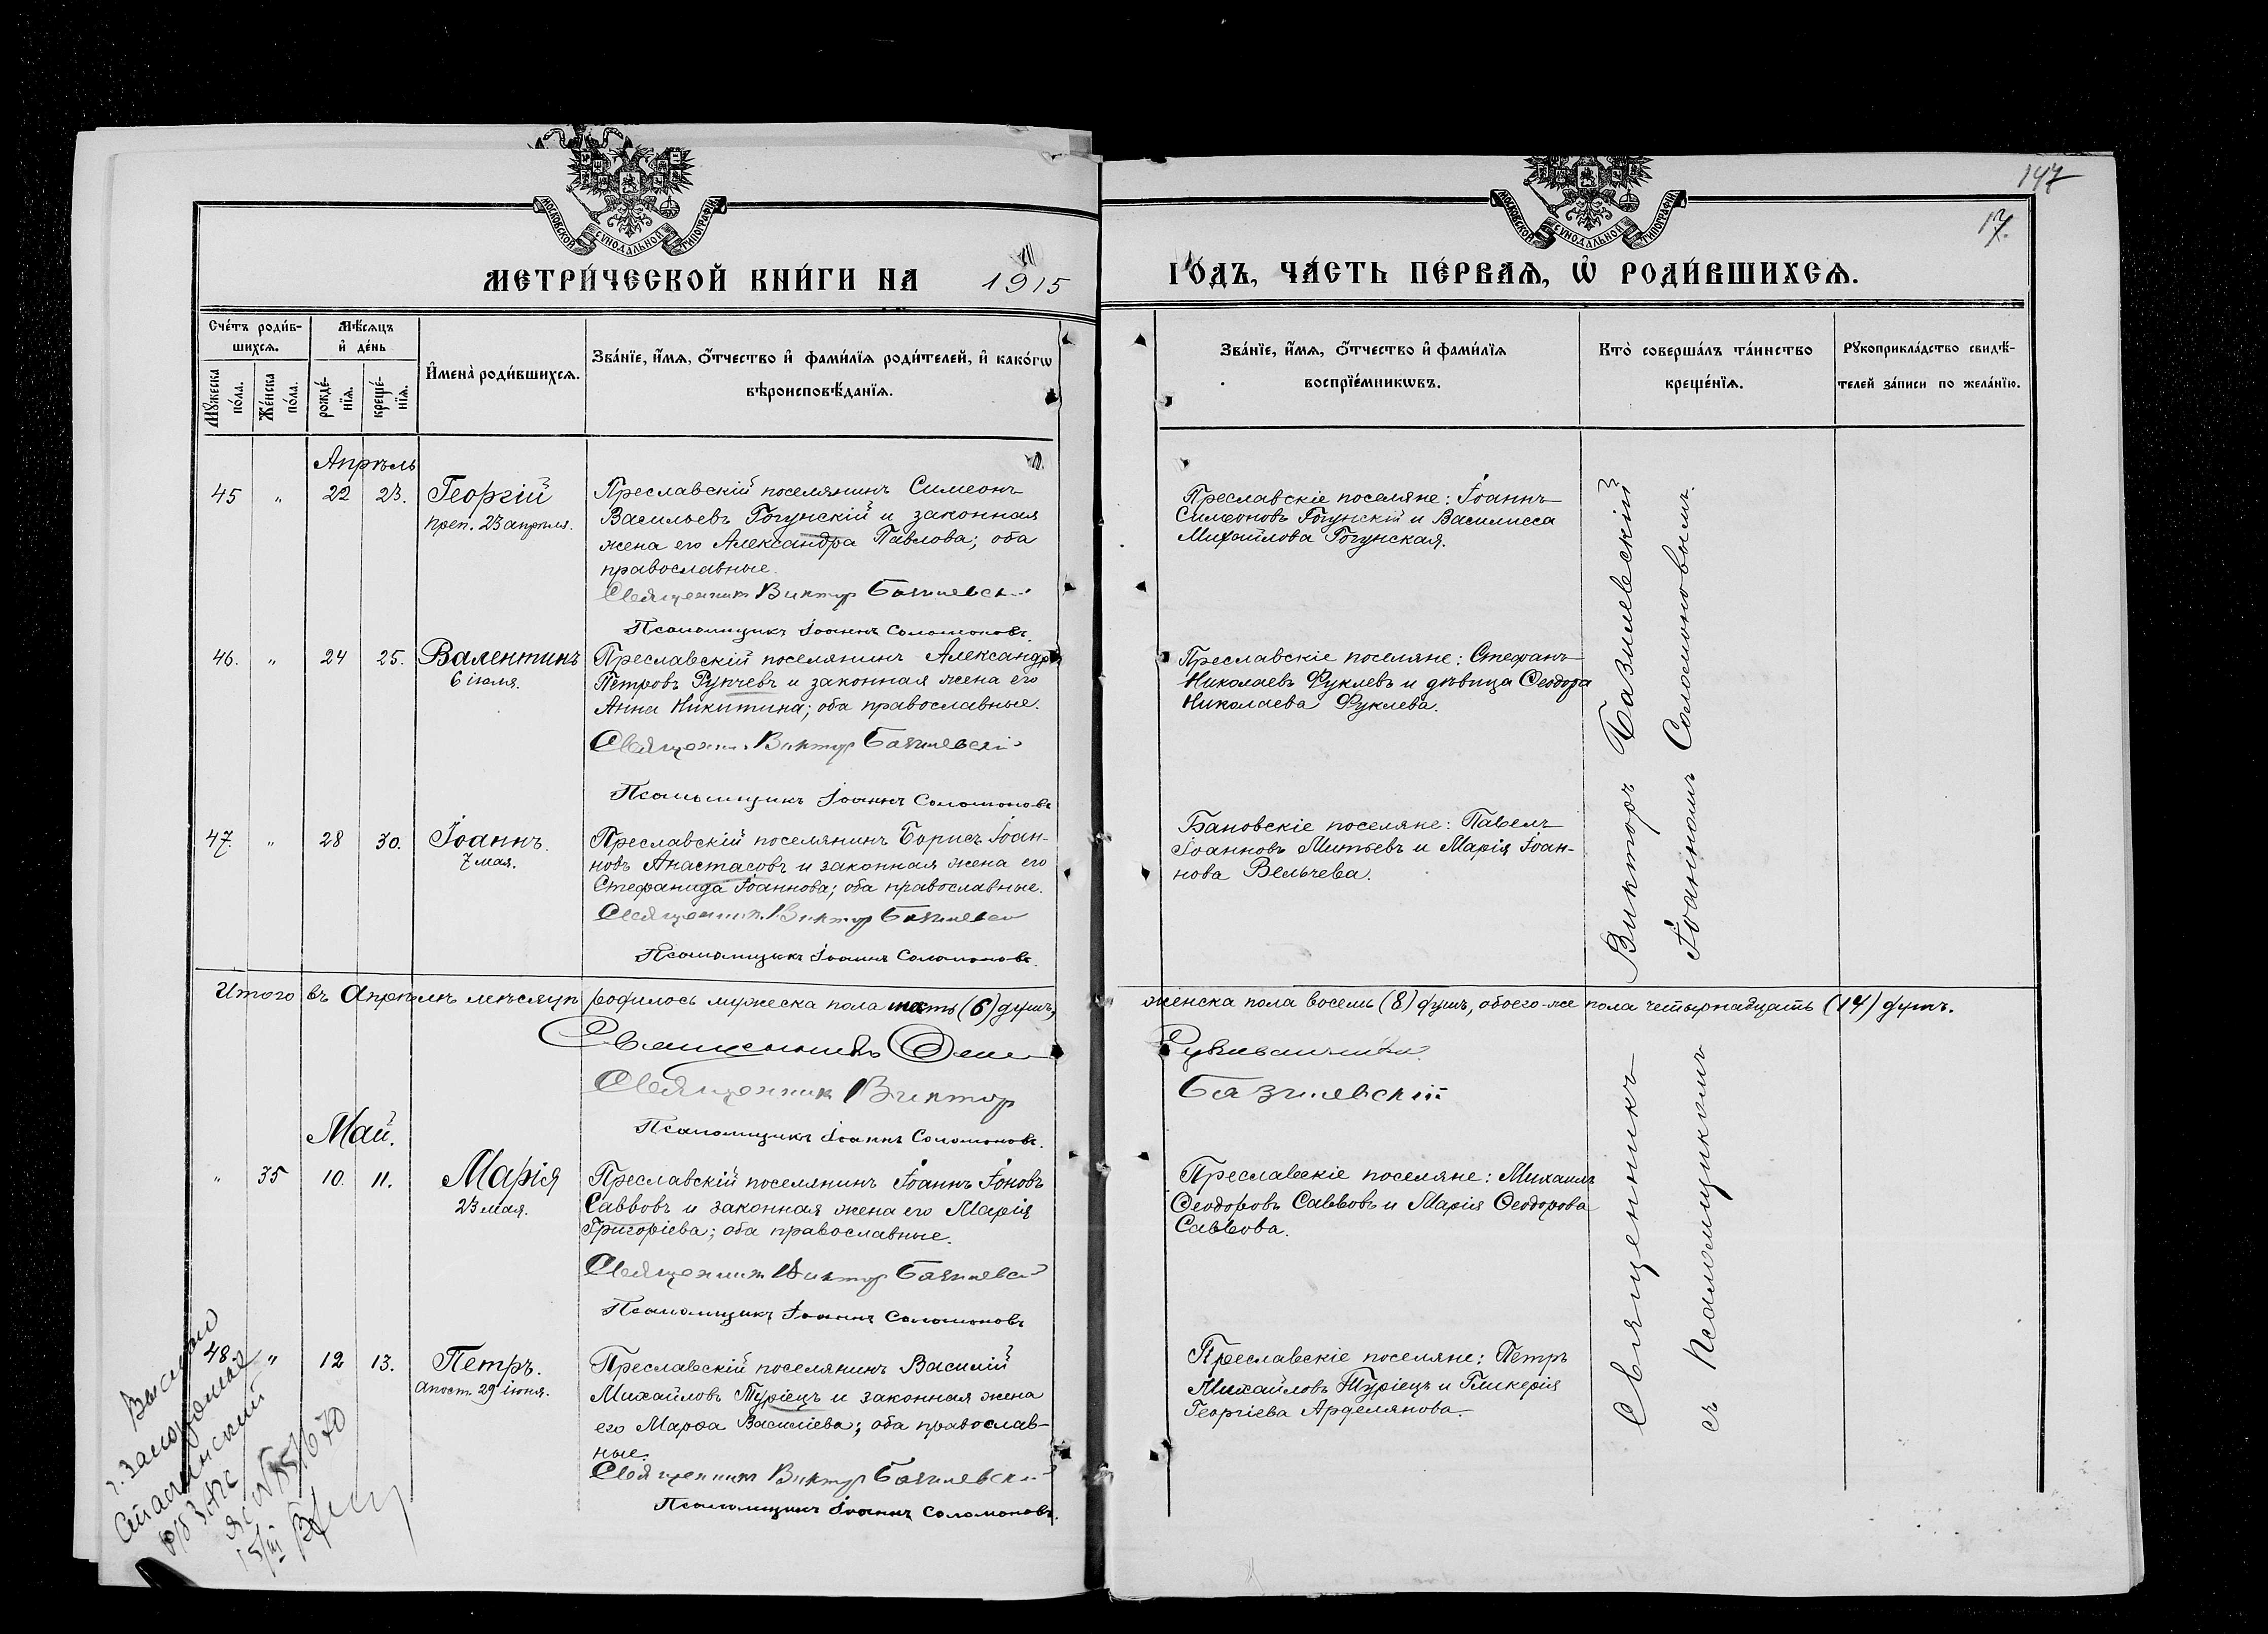 147
17.
МОСКОВСКОЙ СѴНОДАЛЬНОЙ ТИПОГРАФІИ
МОСКОВСКОЙ СѴНОДАЛЬНОЙ ТИПОГРАФІИ
МЕТРИ́ЧЕСКОЙ КНИ́ГИ НА 1915 ГО́ДЪ, ЧА́СТЬ ПЕ́РВАѦ, Ѡ҆ РОДИ́ВШИХСѦ.
Сче́тъ роди́в-
шихсѧ.
Мꙋ́жеска по́ла.
Же́нска по́ла.
Мѣ́сѧцъ
и҆ де́нь
рожде́-
нїѧ.
креще́-
нїѧ.
И҆мена̀ роди́вшихсѧ.
Зва́нїе, и҆́мѧ, ѻ҆́тчество и҆ фами́лїѧ роди́телей, и҆ како́гѡ
вѣроисповѣ́данїѧ.
Зва́нїе, и҆́мѧ, ѻ҆́тчество и҆ фами́лїѧ
воспрїе́мникѡвъ.
Кто̀ соверша́лъ та́инство
креще́нїѧ.
Рꙋкоприкла́дство свидѣ́-
телей за́писи по жела́нїю.
Апрѣль
45 „ 22 23. Георгій
преп. 23 апрѣля.
Преславскій поселянинъ Симеонъ
Васильевъ Гогунскій и законная
жена его Александра Павлова; оба
православные.
Священник Виктор Базилевскій
Псаломщикъ Іоаннъ Соломоновъ.
Преславскіе поселяне: Іоаннъ
Симеоновъ Гогунскій и Василисса
Михайлова Гогунская.
46. „ 24 25. Валентинъ
6 іюля.
Преславскій поселянинъ Александръ
Петровъ Рупчевъ и законная жена его
Анна Никитина; оба православные.
Священник Виктор Базилевскій
Псаломщикъ Іоаннъ Соломоновъ
Преславскіе поселяне: Стефанъ
Николаевъ Фуклевъ и дѣвица Ѳеодора
Николаева Фуклева.
47. „ 28 30. Іоаннъ.
7 мая.
Преславскій поселянинъ Борисъ Іоан-
новъ Анастасовъ и законная жена его
Стефанида Іоаннова; оба православные.
Священник Виктор Базилевскій
Псаломщикъ Іоаннъ Соломоновъ.
Бановскіе поселяне: Павелъ
Іоанновъ Митьевъ и Марія Іоан-
нова Вельчева.
Итого въ Апрѣлѣ мѣсяцѣ родилось мужеска пола шесть (6) душъ, женска пола восемь (8) душъ, обоего-же пола четырнадцать (14) душъ.
Священник Виктор Базилевскій
Псаломщикъ Іоаннъ Соломоновъ.
Май.
„ 35 10. 11. Марія
23 мая.
Преславскій поселянинъ Іоаннъ Іоновъ
Саввовъ и законная жена его Марія
Григоріева; оба православные.
Священник Виктор Базилевскій
Псаломщикъ Іоаннъ Соломоновъ
Преславскіе поселяне: Михаилъ
Ѳеодоровъ Саввовъ и Марія Ѳеодорова
Саввова.
48. „ 12 13. Петръ.
Апост. 29 іюня.
Преславскій поселянинъ Василій
Михайловъ Туріецъ и законная жена
его Марѳа Василіева; оба православ-
ные.
Священник Виктор Базилевскій
Псаломщикъ Іоаннъ Соломоновъ.
Преславскіе поселяне: Петръ
Михайловъ Туріецъ и Гликерія
Георгіева Арделянова.
Священникъ Викторъ Базилевскій
съ Псаломщикомъ Іоанномъ Соломоновымъ.